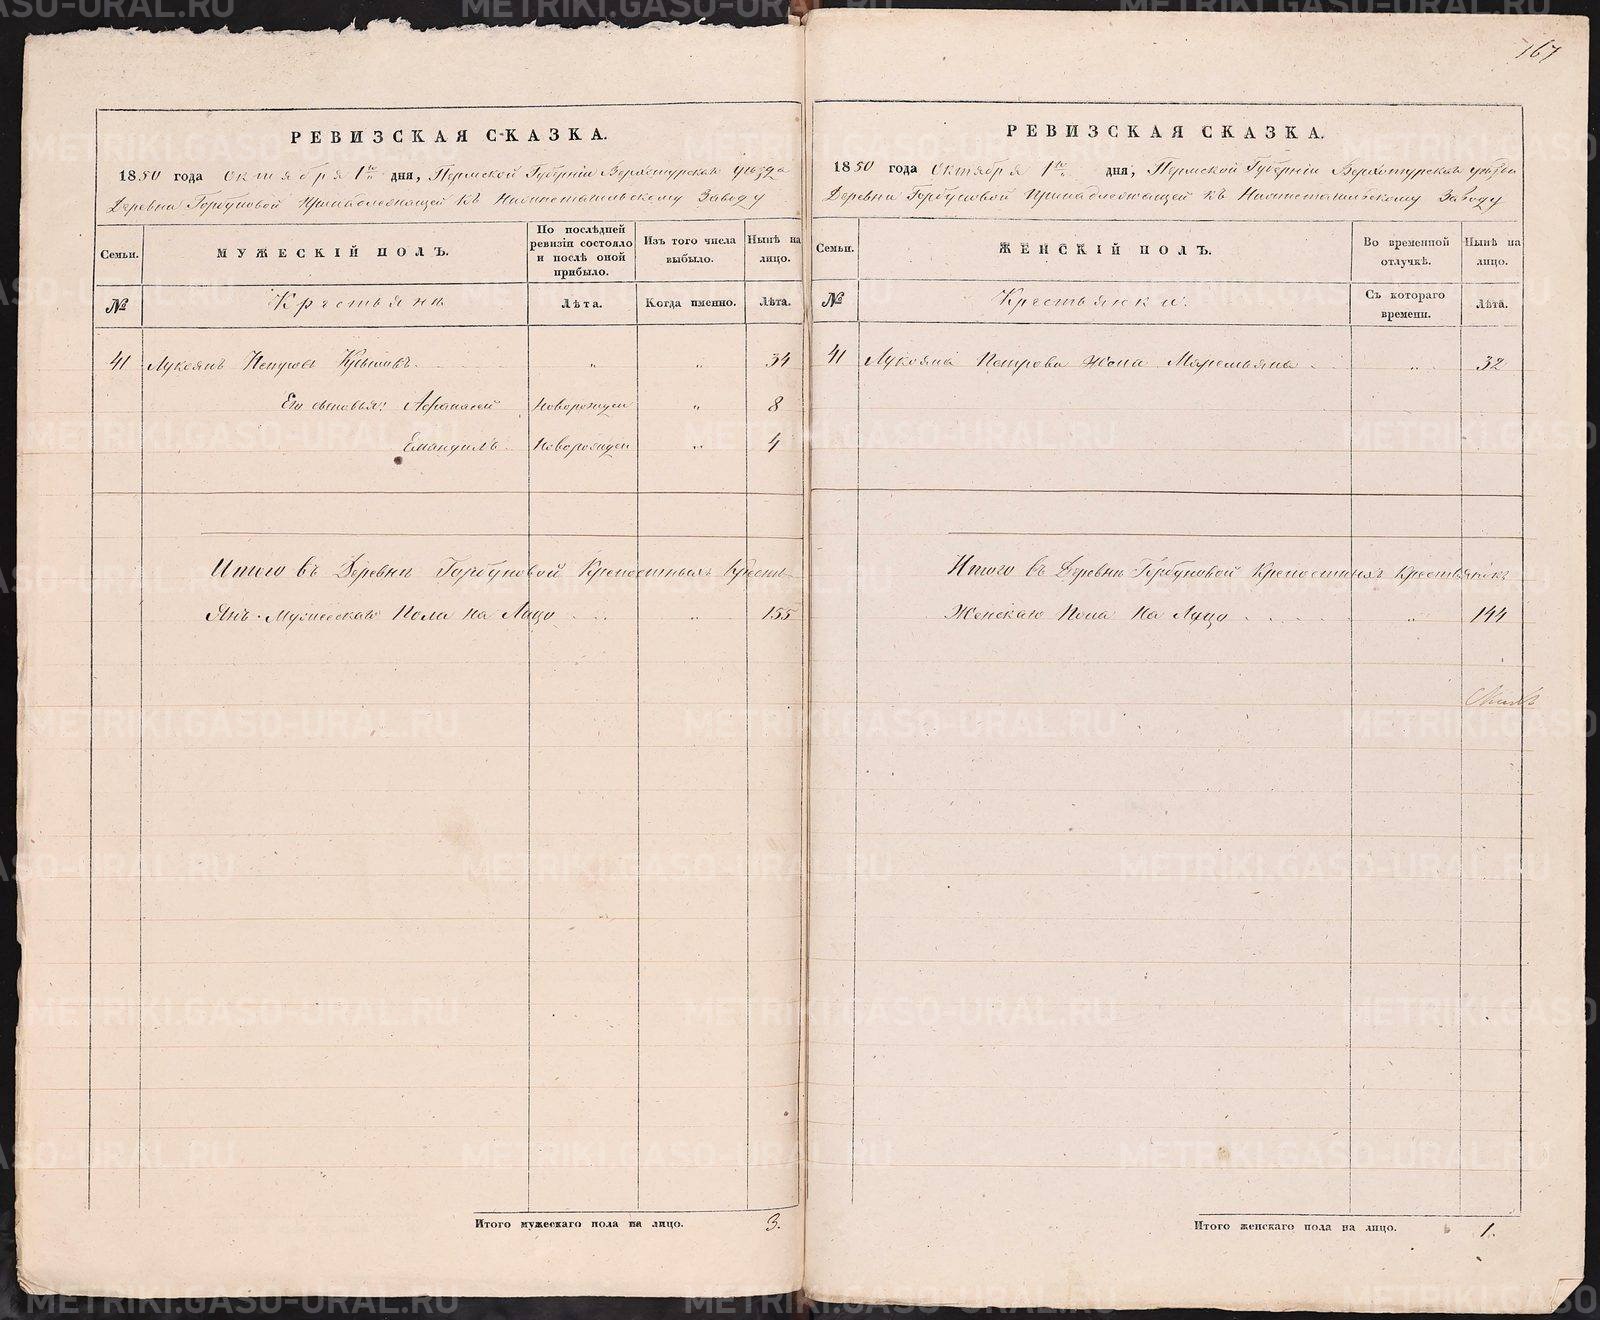 167
РЕВИЗСКАЯ СКАЗКА.
1850 года Октября 1го дня, Пермской Губерніи Верхотурскаго уѣзда
Деревни Горбуновой принадлежащей къ Нижнетагильскому Заводу
Семьи.
МУЖЕСКІЙ ПОЛЪ.
По послѣдней ревизіи состояло и послѣ оной прибыло.
Изъ того числа выбыло.
Нынѣ на лицо.
№
Крестьяне
Лѣта.
Когда именно.
Лѣта.
41 Лукоянъ Петровъ „ „ 34
Его сыновья: Афанасей Новорожден „ 8
Новорожден „ 4
Итого въ Деревни Горбуновой Крепостныхъ Кресть-
янъ Мужескаго Пола на Лицо „ 155
Итого мужескаго пола на лицо. 3.
РЕВИЗСКАЯ СКАЗКА.
1850 года Октября 1го дня, Пермской Губерніи Верхотурскаго уѣзда
Деревни Горбуновой принадлежащей къ Нижнетагильскому Заводу
Семьи.
ЖЕНСКІЙ ПОЛЪ.
Во временной отлучкѣ.
Нынѣ на лицо.
№
Крестьянки.
Съ котораго времени.
Лѣта.
41 Лукояна Петрова жена Маремьяна „ 32
Итого въ Деревни Горбуновой Крепостныхъ Крестьянокъ
Женскаго Пола на Лицо „ 144
Итого женскаго пола на лицо. 1.
METRIKI.GASO-URAL.RU